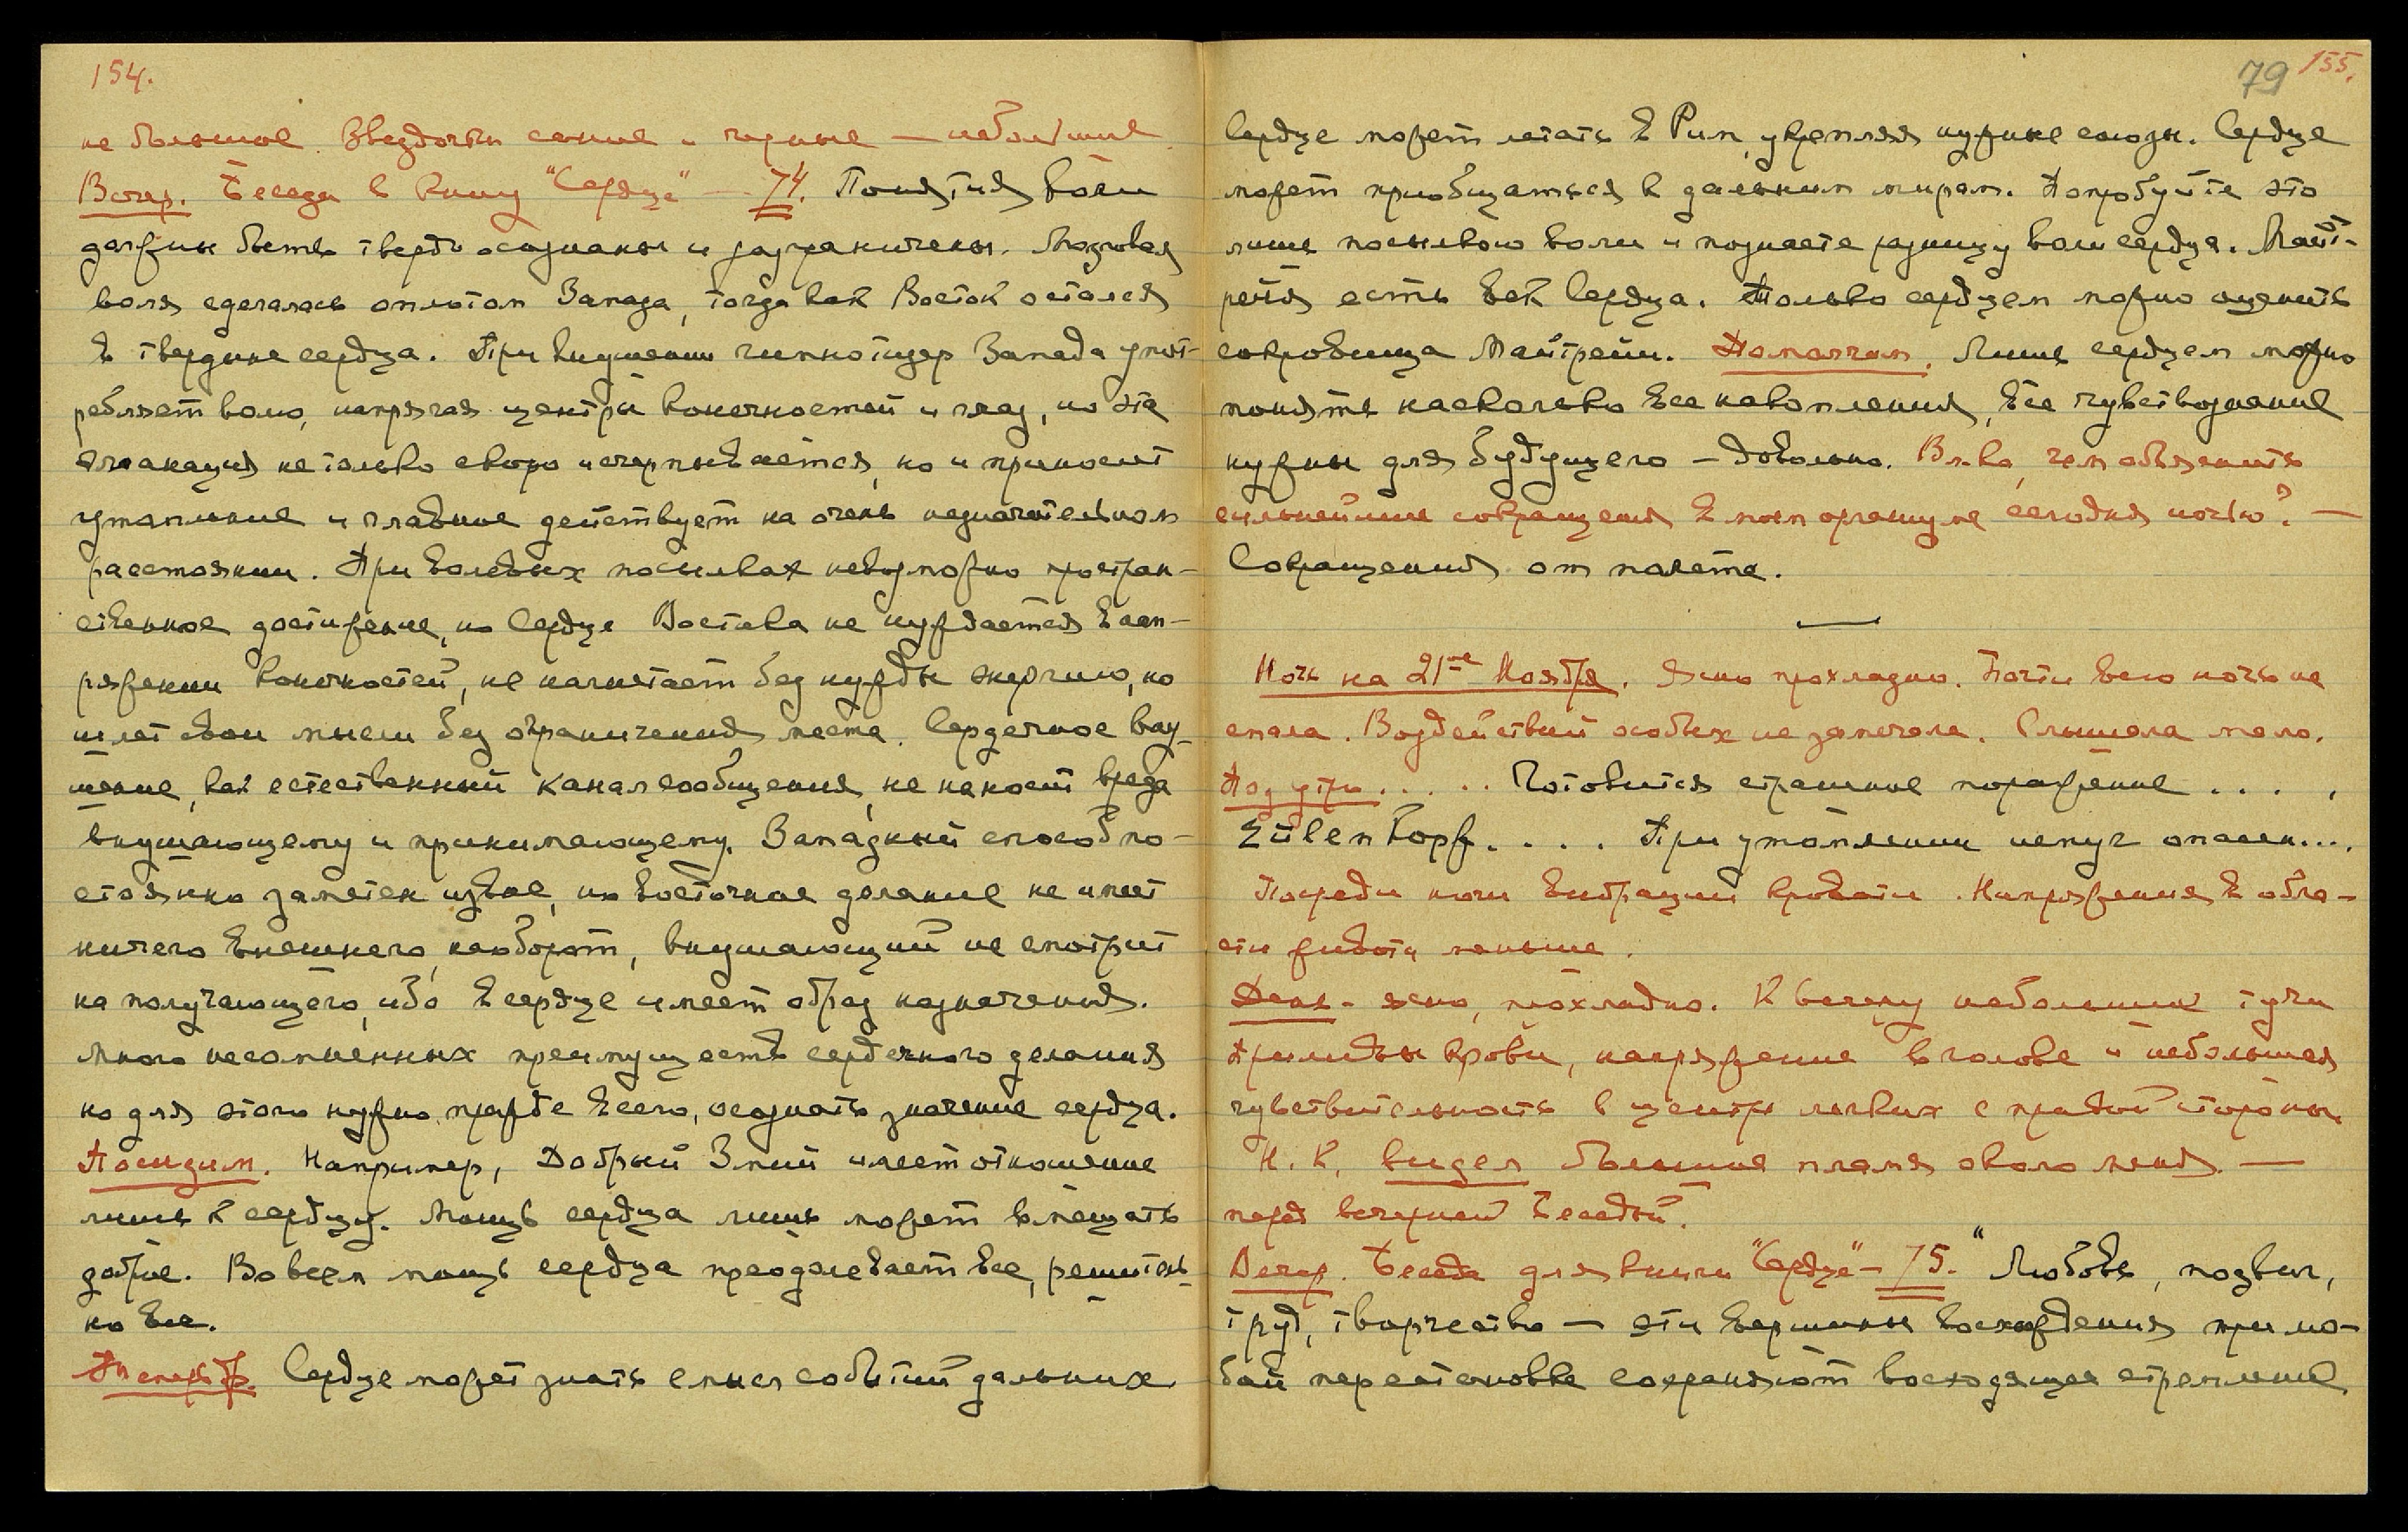 154.
не большое. Звездочки синие и черные — небольшие.
Вечер. Беседа в книгу "Сердце" — 74. Понятия воли
должны быть твердо осознаны и разграничены. Мозговая
воля сделалась оплотом Запада, тогда как Восток остался
в твердыне сердца. При внушении гипнотизер Запада упот-
ребляет волю, напрягая центры конечностей и глаз, но эта
эманация не только скоро исчерпывается, но и приносит
утомление и главное действует на очень незначительном
расстоянии. При волевых посылках невозможно простран-
ственное достижение, но Сердце Востока не нуждается в нап-
ряжении конечностей, не нагнетает без нужды энергию, но
шлет свои мысли без ограничения места. Сердечное вну-
шение, как естественный канал сообщения, не наносит вреда
внушающему и принимающему. Западный способ по-
стоянно заметен извне, но восточное делание не имеет
ничего внешнего, наоборот, внушающий не смотрит
на получающего, ибо в сердце имеет образ назначения.
Много несомненных преимуществ сердечного делания
но для этого нужно, прежде всего, осознать значение сердца.
Посидим. Например, Добрый Змий имеет отношение
лишь к сердцу. Мощь сердца лишь может вмещать
доброе. Во всем мощь сердца преодолевает все, решитель-
но все.
Сердце может знать смысл событий дальних
79 155.
Сердце может летать в Рим, укрепляя нужные союзы. Сердце
может приобщаться к дальним мирам. Попробуйте это
лишь посылкою воли и познаете разницу воли сердца. Майт-
рейя есть век Сердца. Только сердцем можно оценить
сокровища Майтрейи. Помолчим. Лишь сердцем можно
понять насколько все накопления, все чувствознание
нужны для будущего — довольно. Вл-ка, чем объяснить
сильнейшие сокращения в моем организме сегодня ночью? —
Сокращения от полета.
Ночь на 21ое Ноября. Ясно прохладно. Почти всю ночь не
спала. Воздействий особых не замечала. Слышала мало.
Под утро..... Готовится страшное поражение ....,
Eülenkopf.... При утомлении испуг опасен....
Посреди ночи вибрации кровати. Напряжения в обла-
сти живота меньше.
День - ясно, прохладно. К вечеру небольшие тучи
Приливы крови, напряжение в голове и небольшая
чувствительность в центре легких с правой стороны
Н. К. видел большое пламя около меня —
перед вечерней Беседой.
Вечер. Беседа для книги "Сердце" — 75. "Любовь, подвиг,
труд, творчество — эти вершины восхождения при лю-
бой перестановке сохраняют восходящее стремление